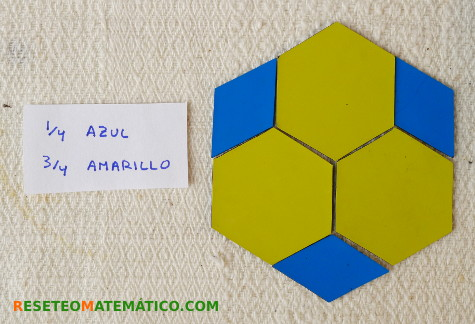 1/4 AZUL
3/4 AMARILLO
RESETEOMATEMÁTICO.COM